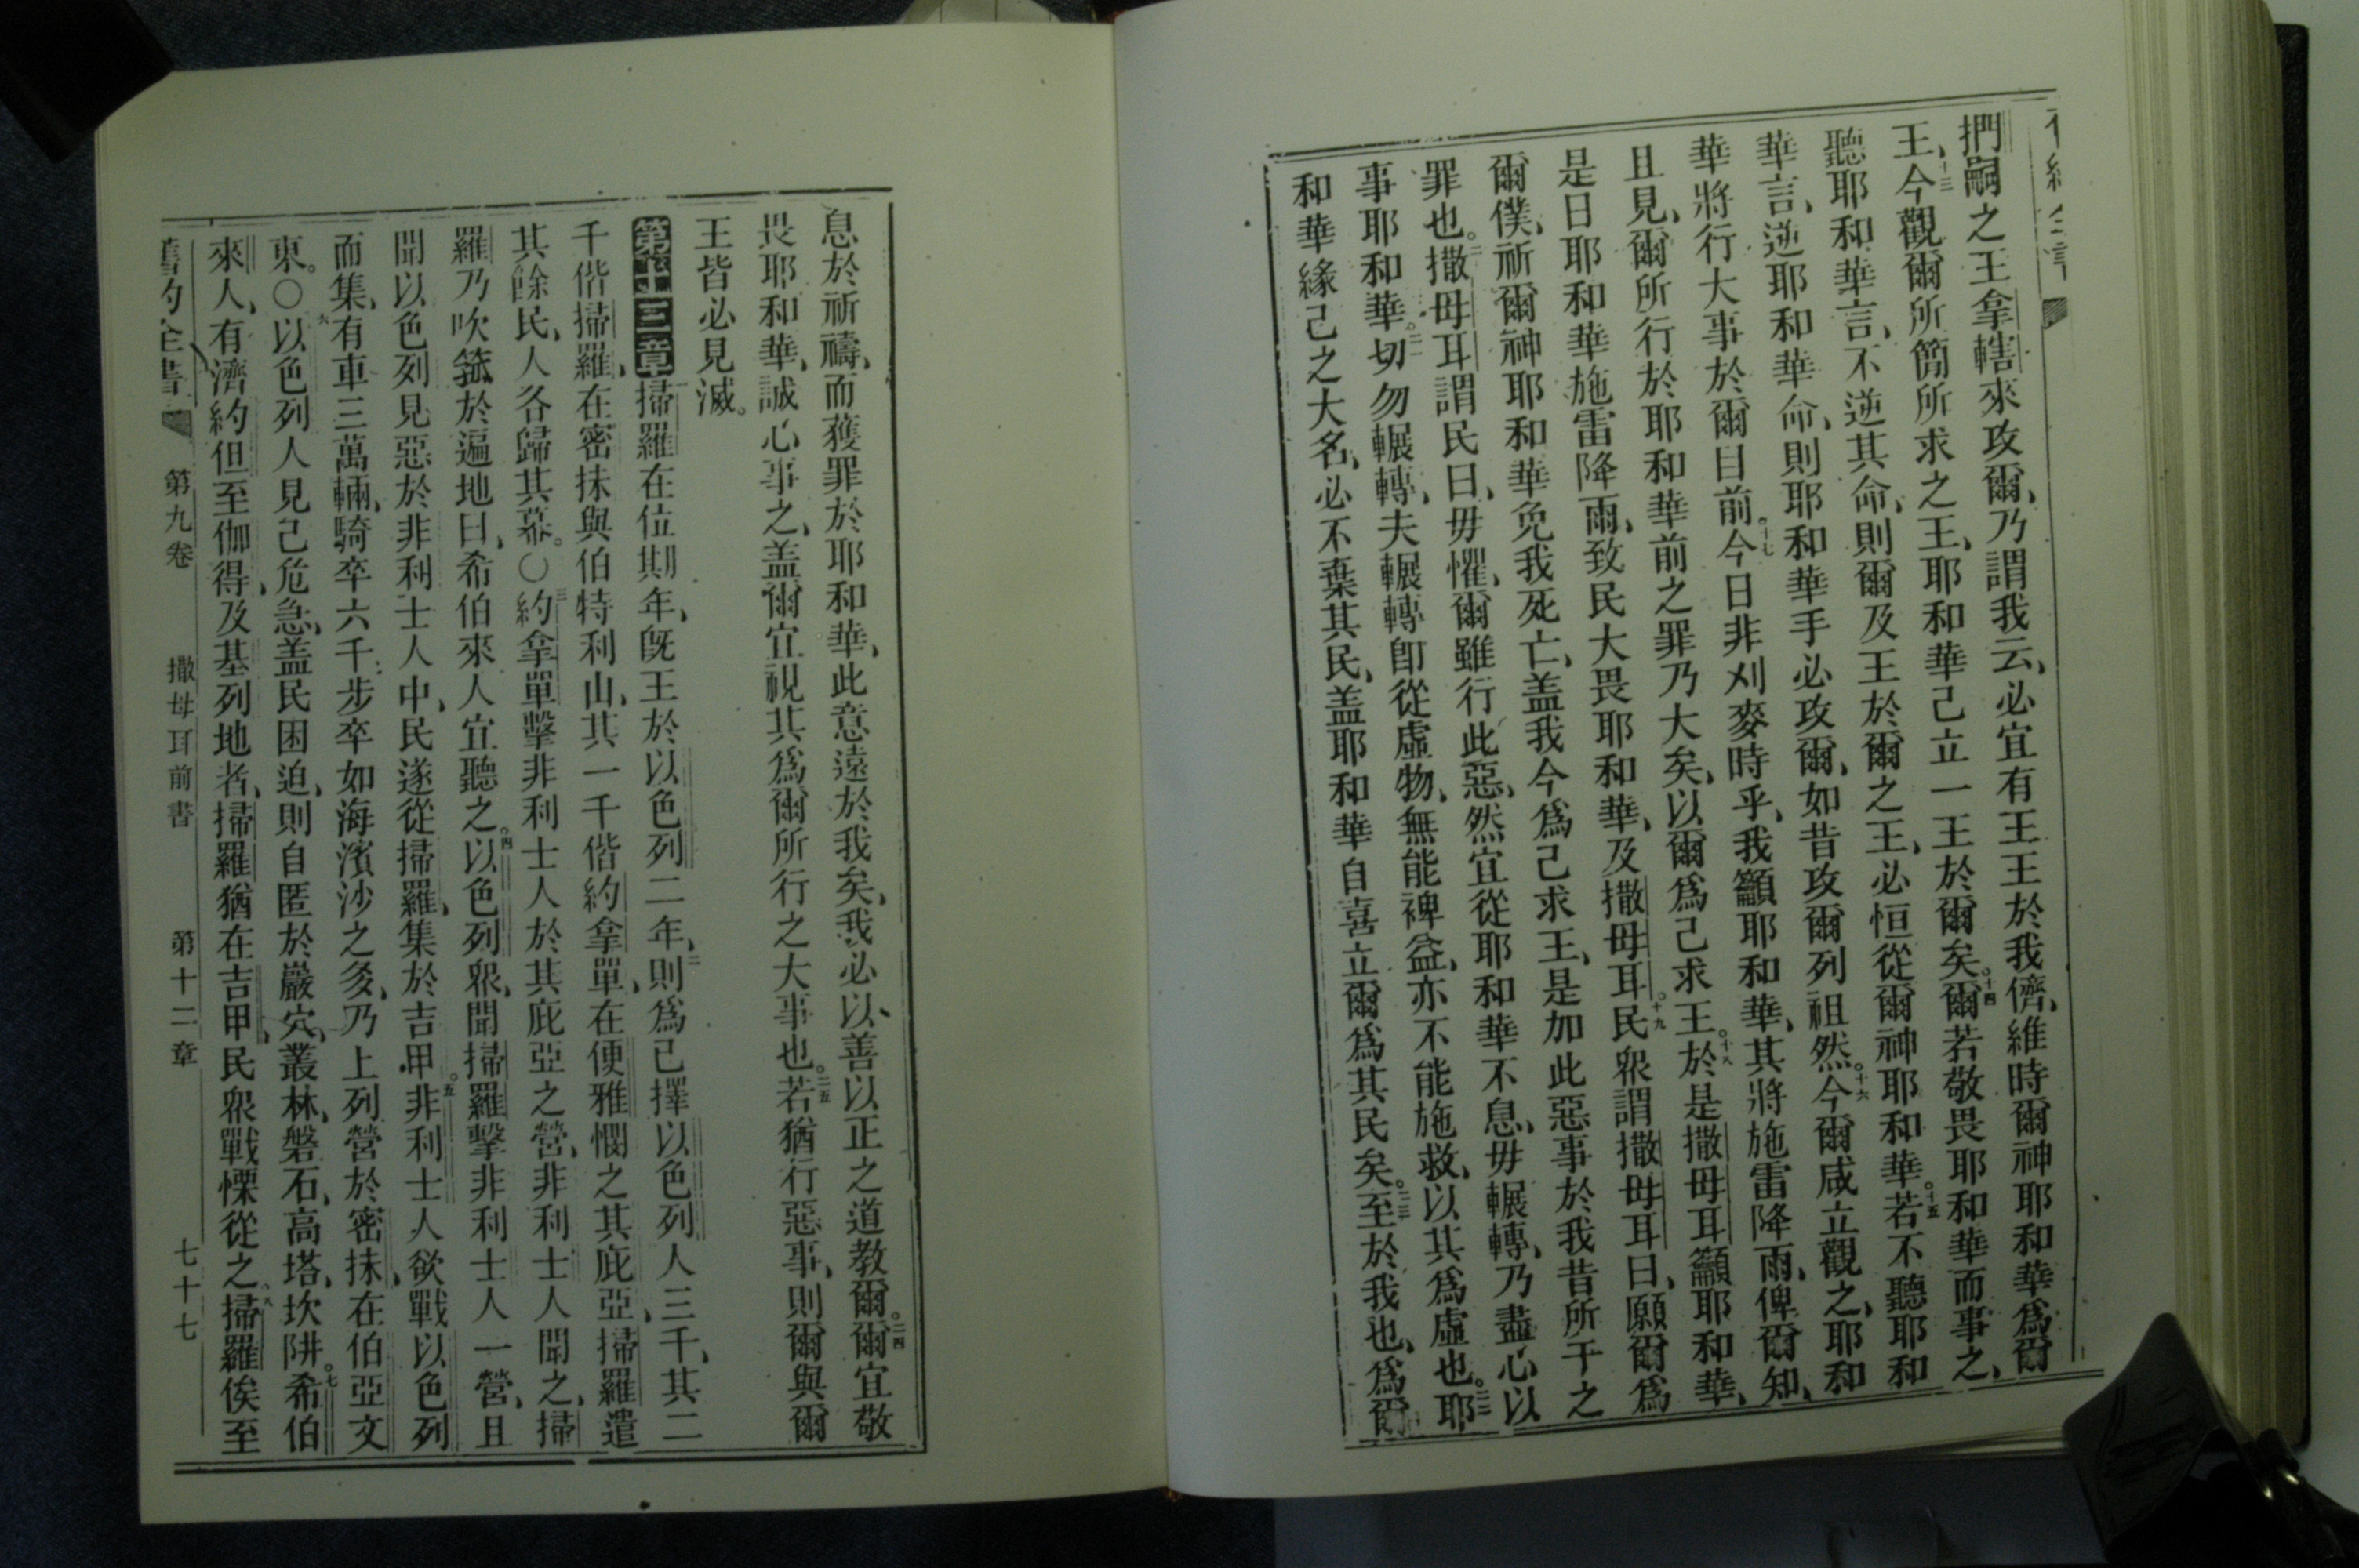 捫嗣之王拿轄來攻爾、乃謂我云、必宜有王王於我儕、維時爾神耶和華爲爾
王、十三今觀爾所簡所求之王、耶和華己立一王於爾矣。十四爾若敬畏耶和華而事之、
聽耶和華言、不逆其命、則爾及王於爾之王、必恒從爾神耶和華。十五若不聽耶和
華言、逆耶和華命、則耶和華手必攻爾、如昔攻爾列祖然。十六今爾咸立觀之、耶和
華將行大事於爾目前。十七今日非刈麥時乎、我籲耶和華、其將施雷降雨、俾爾知、
且見、爾所行於耶和華前之罪乃大矣、以爾爲己求王。十八於是撒母耳籲耶和華、
是日耶和華施雷降雨、致民大畏耶和華、及撒母耳。十九民眾謂撒母耳曰、願爾爲
爾僕、祈爾神耶和華免我死亡、盖我今爲己求王、是加此惡事於我昔所干之
罪也。二十撒母耳謂民曰、毋懼、爾雖行此惡、然宜從耶和華不息、毋輾轉、乃盡心以
事耶和華。二一切勿輾轉、夫輾轉卽從虛物、無能裨益、亦不能施救、以其爲虛也。二二耶
和華緣己之大名、必不棄其民、盖耶和華自喜立爾爲其民矣。二三至於我也、爲爾
息於祈禱、而獲罪於耶和華、此意遠於我矣、我必以善以正之道教爾。二四爾宜敬
畏耶和華、誠心事之、盖爾宜視其爲爾所行之大事也。二五若猶行惡事、則爾與爾
王皆必見滅。
第十三章 掃羅在位期年、旣王於以色列二年、二則爲己擇以色列人三千、其二
千偕掃羅、在密抹與伯特利山、其一千偕約拿單、在便雅憫之其庇亞、掃羅遣
其餘民、人各歸其幕。○三約拿單擊非利士人於其庇亞之營、非利士人聞之、掃
羅乃吹箛於遍地曰、希伯來人宜聽之。四以色列眾、聞掃羅擊非利士人一營、且
聞以色列見惡於非利士人中、民遂從掃羅、集於吉甲。五非利士人欲戰以色列
而集、有車三萬輛、騎卒六千、步卒如海濱沙之多、乃上列營於密抹、在伯亞文
東。○六以色列人見己危急、盖民困迫、則自匿於巖穴、叢林、磐石、高塔、坎阱。七希伯
來人、有濟約但至伽得、及基列地者、掃羅猶在吉甲、民眾戰慄從之。八掃羅俟至
舊約全書 第九卷 撒母耳前書 第十二章 七十七